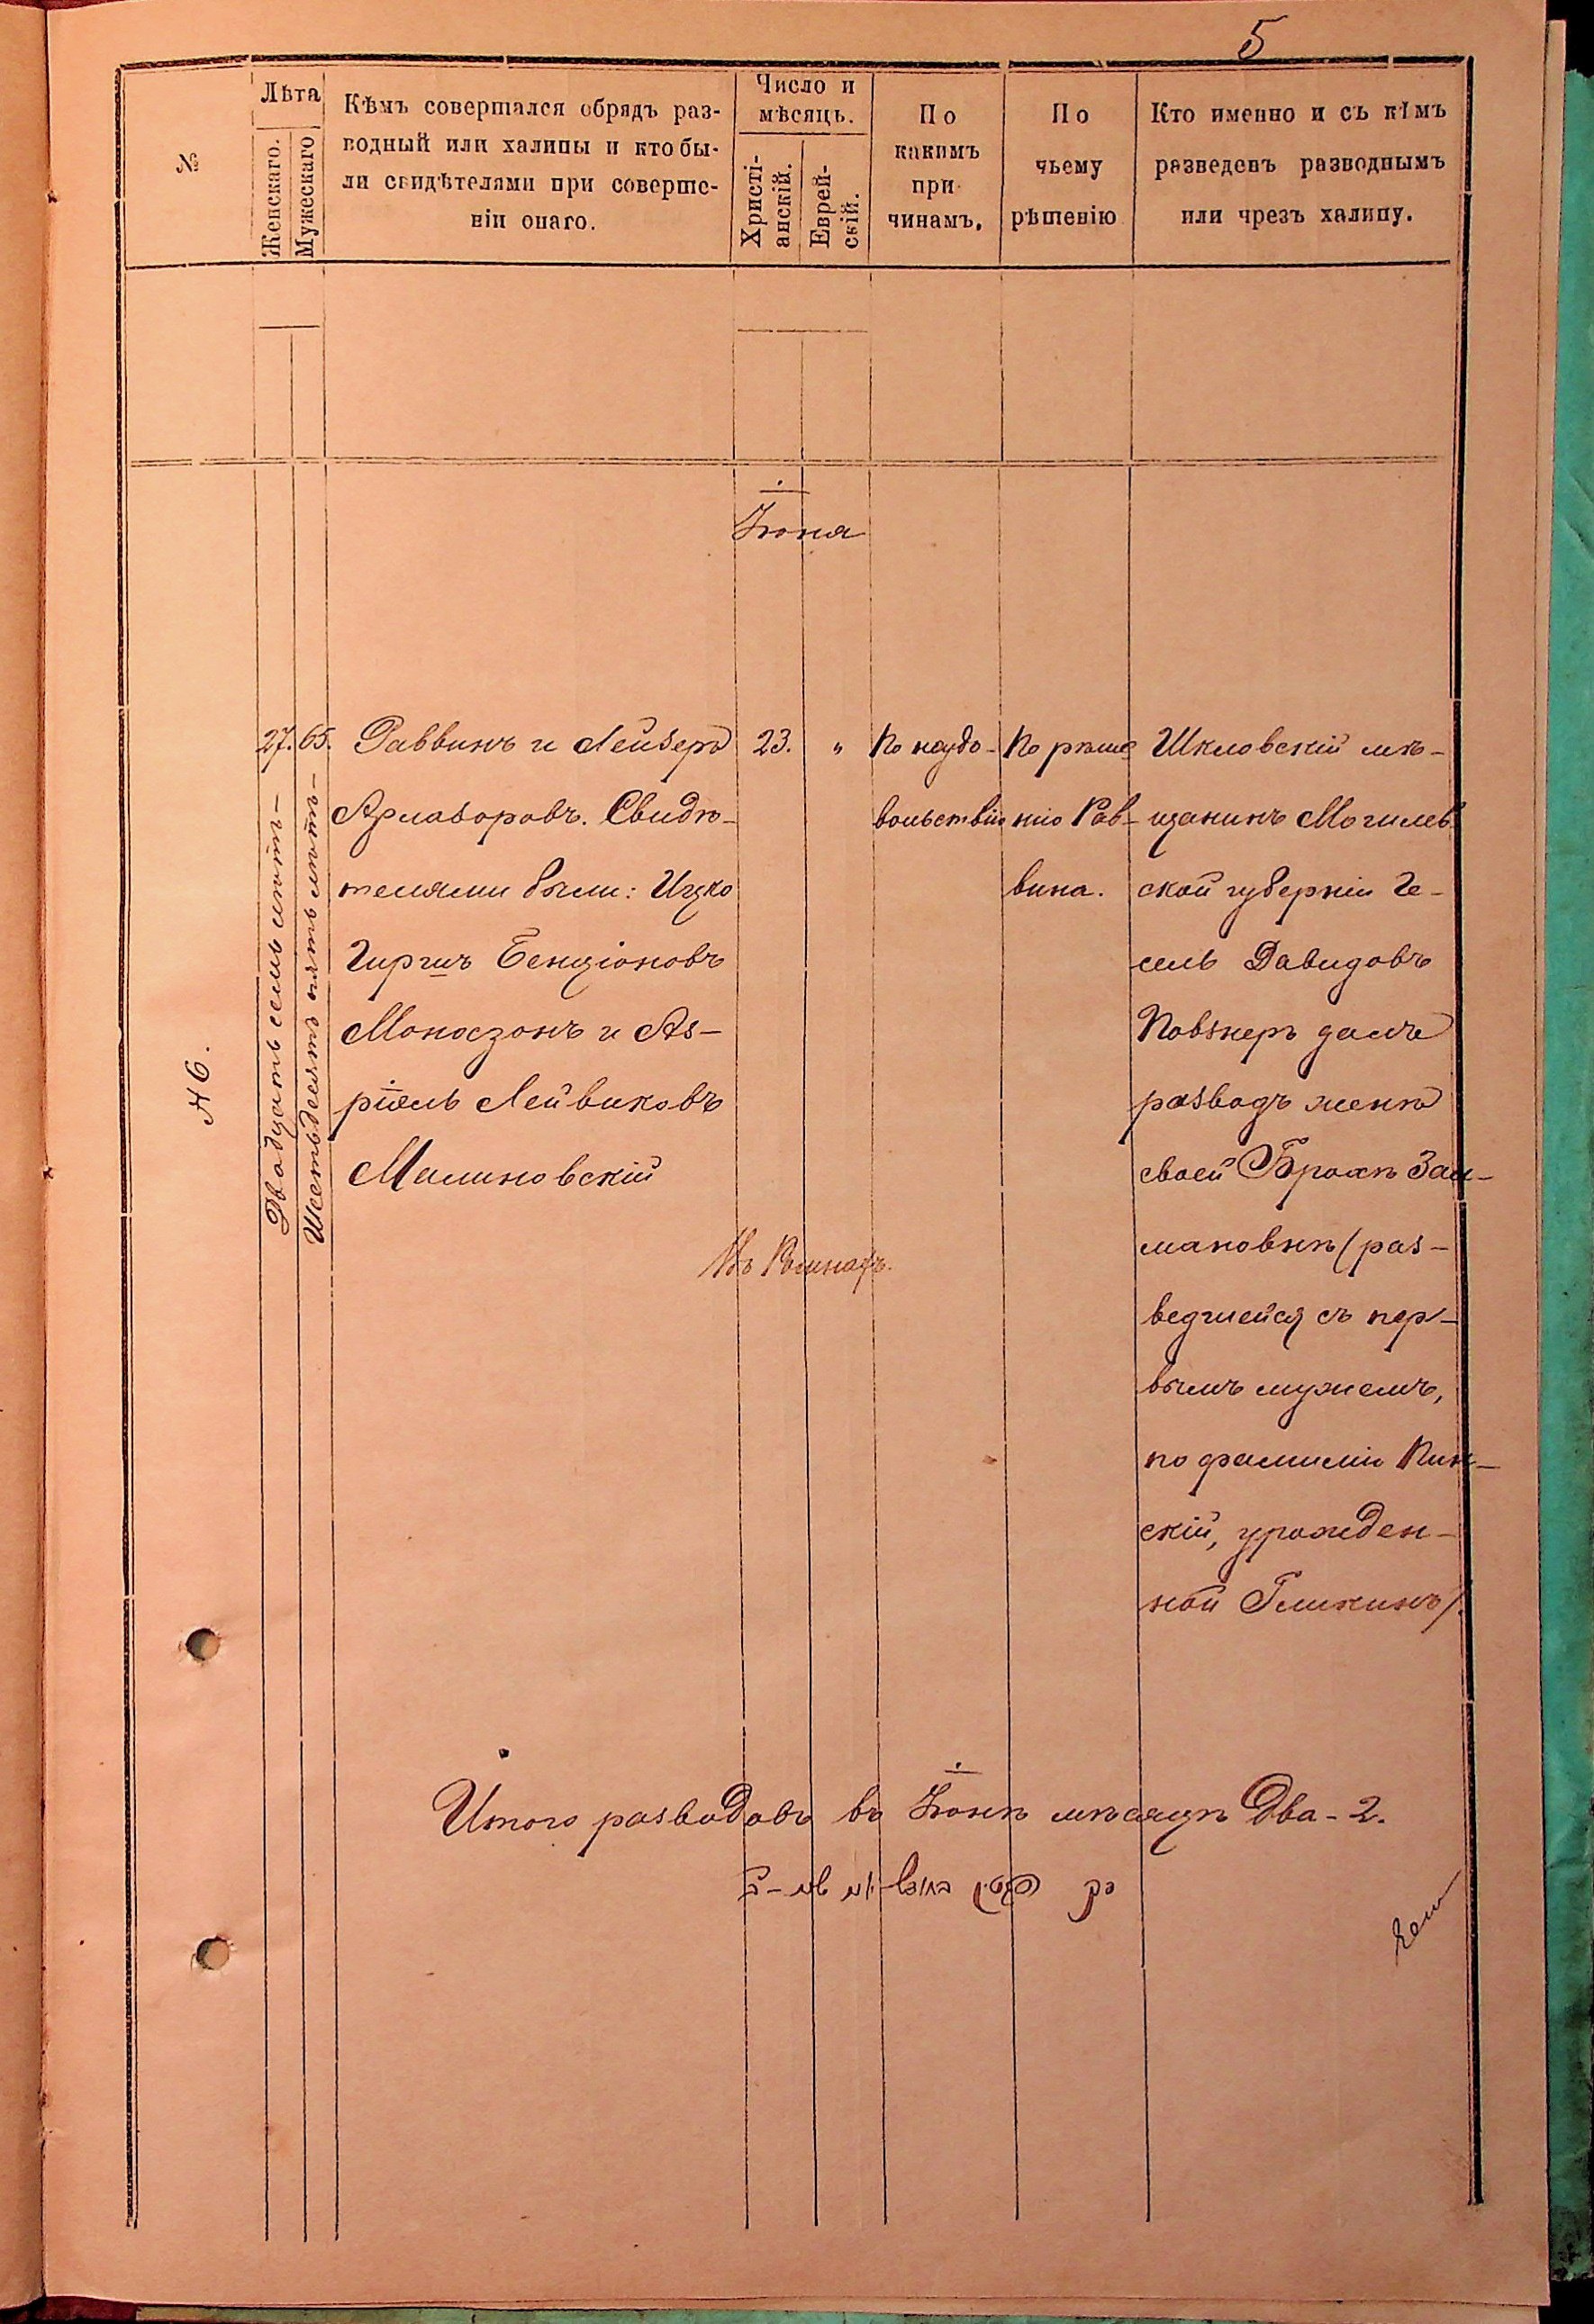 5
№
Лѣта
Женскаго.
Мужескаго
Кѣмъ совершался обрядъ раз-
водный или халицы и кто бы-
ли свидѣтелями при соверше-
ніи онаго.
Число и
мѣсяць.
Христі-
анскій.
Еврей-
скій.
По
какимъ
при
чинамъ.
По
чьему
рѣшенію
Кто именно и съ кѣмъ
разведенъ разводнымъ
или чрезъ халицу.
Іюня
№ 6.
27.
Двадцать семь лѣтъ-
65.
Шестьдесятъ пять лѣтъ-
Раввинъ и Лейзеръ
Арлазоровъ. Свидѣ-
телями были: Ицко
Гиршъ Бенціоновъ
Моносзонъ и Аз-
ріэль Лейвиковъ
Малиновскій
23.
"
По неудо-
вольствію
По рѣше
нію Рав-
вина.
Шкловскій мѣ-
щанинъ Могилев
ской губерніи Ге-
сель Давидовъ
Повзнеръ далъ
разводъ женѣ
своей Брохѣ Зал-
мановнѣ (раз-
ведшейся съ пер-
вымъ мужемъ,
по фамиліи Пин-
скій, урожден-
ной Гликинъ).
Въ Ромнахъ.
Итого разводовъ въ Іюнѣ мѣсяцѣ два - 2.